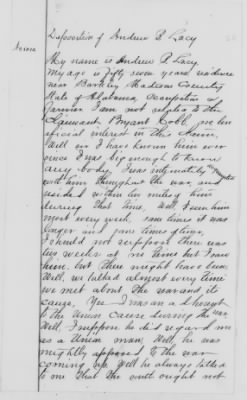 Deposition of Andrew D. Lacy
My name is Andrew D. Lacy.
My age is fifty seven years residence
near Berkley Madison County
State of Alabama, Occupation a
farmer I am not related to the
Claimant Bryant Cobb, no ben
eficial interest in this claim.
Well sir I have known him ever
since I was big enough to know
any body. I was intimately
with him throughout the war, and
resided within six miles of him
during that time. Well I seen him
most every week, some times it was
longer and some times oftener,
I should not suppose there was
six weeks at no time but I saw
him, but there might have been,
Well, we talked almost every time
we met about the war and its
cause, Yes I was an adherent
to the Union Cause during the war
Well, I suppose he did regard me
as a Union man, Well, he was
mightly opposed to the war
coming up. Well he always talked
to me that the south ought not